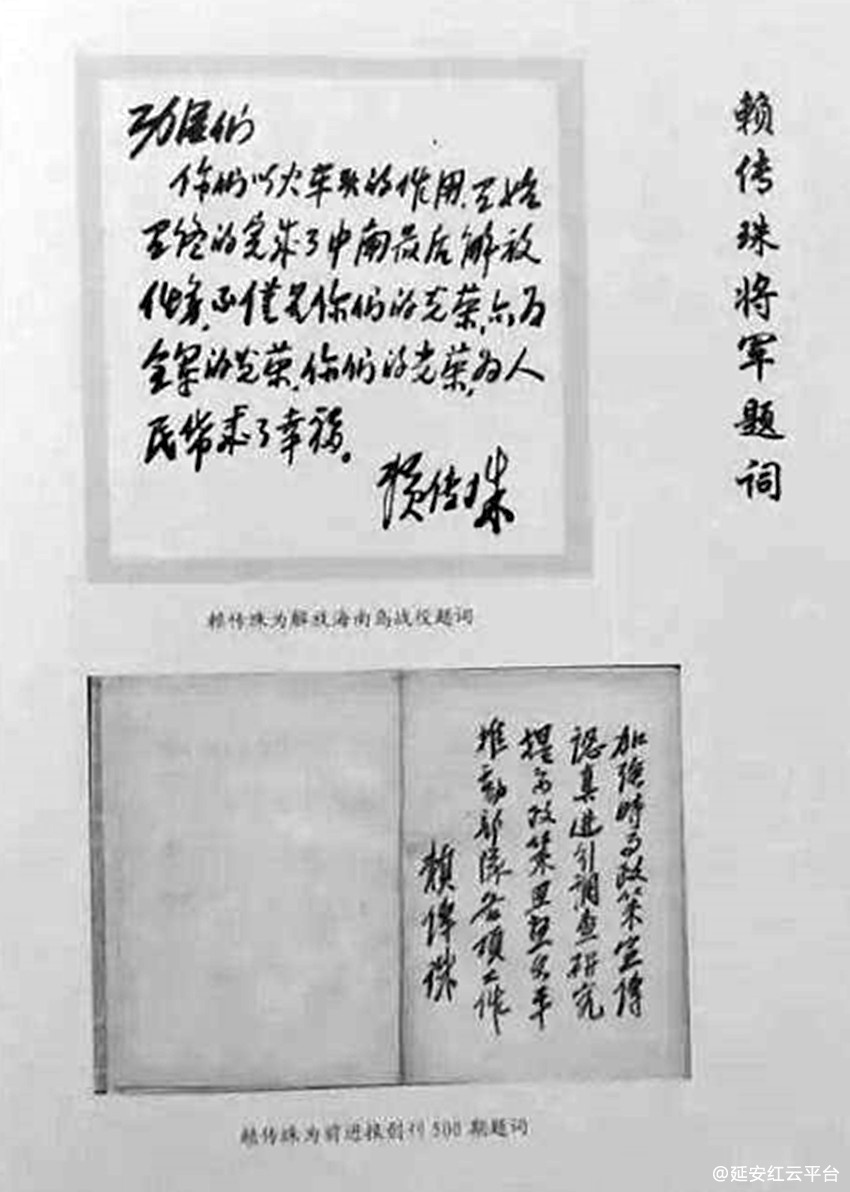 赖传珠将军题词
功臣们
你们以火车头的作用,至始
至终的完成了中南最后解放
任务,不仅是你们的光荣,亦为
全军的光荣,你们的光荣,为人
民带来了幸福。
赖传珠
赖传珠为解放海南岛战役题词
加强时事政策宣传
認真进行調查研究
提高政策思想水平
推动部隊各项工作
賴傳珠
赖传珠为前进报创刊500期题词
@延安红云平台